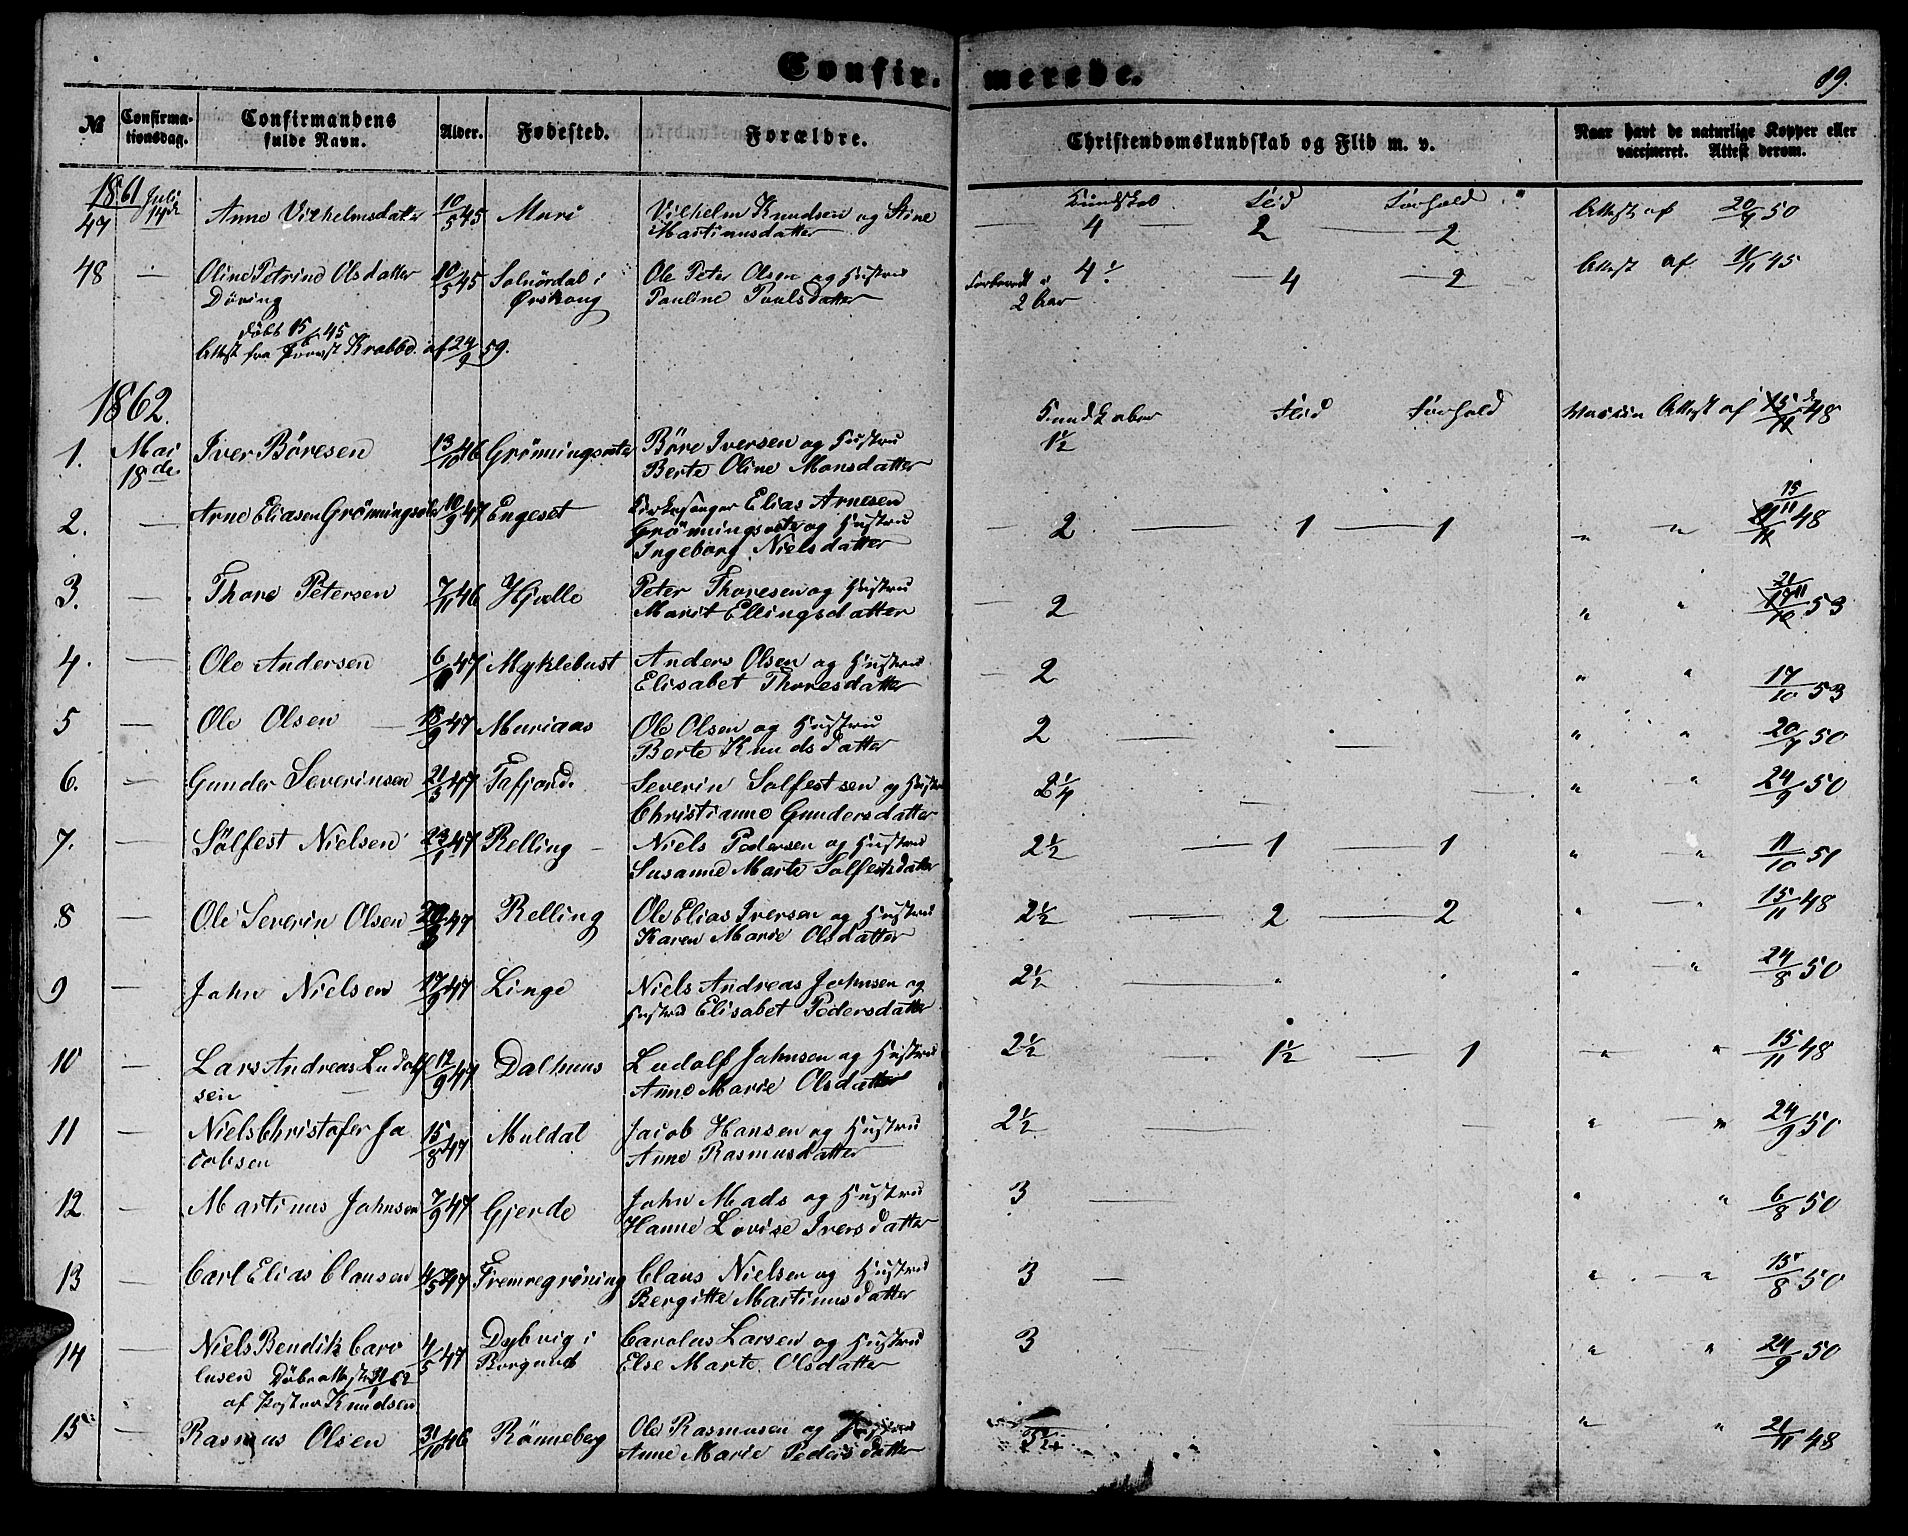 Confir. merede. 89.
№ Confirma-tionsdag. Confirmandens fulde Navn. Alder. Fødested. Forældre. Christendomskundskab og Flid m. v. Naar havt de naturlige Kopper eller vaccineret. Attest derom.
1861 Juli 14de
47 Anne Vilhelmsdatter 10/5 45 Muri Vilhelm Knudsen og Stine
Martinusdatter
Kundskab Flid Forhold
4 2 2 Attest af 20/7 50
48 — Oline Petrine Olsdatter 10/5 45 Solnørdal i Ole Peter Olsen og Hustru
Döving Ørskoug Pauline Paulsdatter
4 4 2 Attest af 11/11 45
2 Aar
døbt 15/6 45
Attest fra Provst Krabbe af 24/9 59.
1862.
Kundskaber Flid Forhold
1. Mai 18de Iver Böresen 13/10 46 Grönningsæter Böre Iversen og Hustru
Berte Oline Monsdatter
1½ Vaccin Attest af 48
2. — Arne Eliasen Grönningsæter 10/9 47 Engeset Kirkesanger Elias Arnesen
Grönningsæter og Hustru
Ingeborg Nielsdatter
2 — 1 — 1 " " 15/11 48
3. — Thore Petersen 7/11 46 Hjelle Peter Thoresen og Hustru
Marit Ellingsdatter
2 " " 53
4. — Ole Andersen 47 Myklebust Anders Olsen og Hustru
Elisabet Thoresdatter
2 " " 17/10 53
5 — Ole Olsen 47 Muriaas Ole Olsen og Hustru
Berte Knudsdatter
2 — — " " 20/7 50
6. — Gunder Severinsen 21/3 47 Tafjord. Severin Solfestsen og Hustru
Christianne Gundersdatter
2¼ — — " " 24/9 50
7. — Sölfest Nielsen 23/1 47 Relling — Niels Pedersen og Hustru
Susanne Marte Solfestsdatter
2½ — 1 — 1 " " 11/10 51
8 — Ole Severin Olsen 47 Relling Ole Elias Iversen og Hustru
Karen Marie Olsdatter
2½ — 2 — 2 " " 15/11 48
9 — John Nielsen 17/9 47 Linge Niels Andreas Johnsen og
Hustru Elisabet Pedersdatter
2½ — " " 24/8 50
10 — Lars Andreas Ludolf 12/9 47 Dalhuus Ludolf Johnsen og Hustru
sen Anne Marie Olsdatter
2½ 1½ — 1 " " 15/11 48
11 — Niels Christofer Ja 15/8 47 Muldal Jacob Hansen og Hustru
cobsen Anne Rasmusdatter
2½ — " " 24/9 50
12 — Martinus Johnsen 7/9 47 Gjerde John Mads og Hustru
Hanne Lovise Iversdatter
3 — " " 6/8 50
13 — Carl Elias Clausen 4/5 47 Fremregröning Claus Nielsen og Hustru
Bergitte Martinusdatter
3 — " " 15/8 50
14 — Niels Bendik Caro 4/5 47 Dybvig i Carolus Larsen og Hustru
lusen Döbeattest 62 Borgund Else Marte Olsdatter
af Pastor Knudsen
3 " " 24/9 50
15 — Rasmus Olsen 31/10 46 Rönneberg Ole Rasmusen og Hustru
Anne Marie Pedersdatter
" " 21/11 48